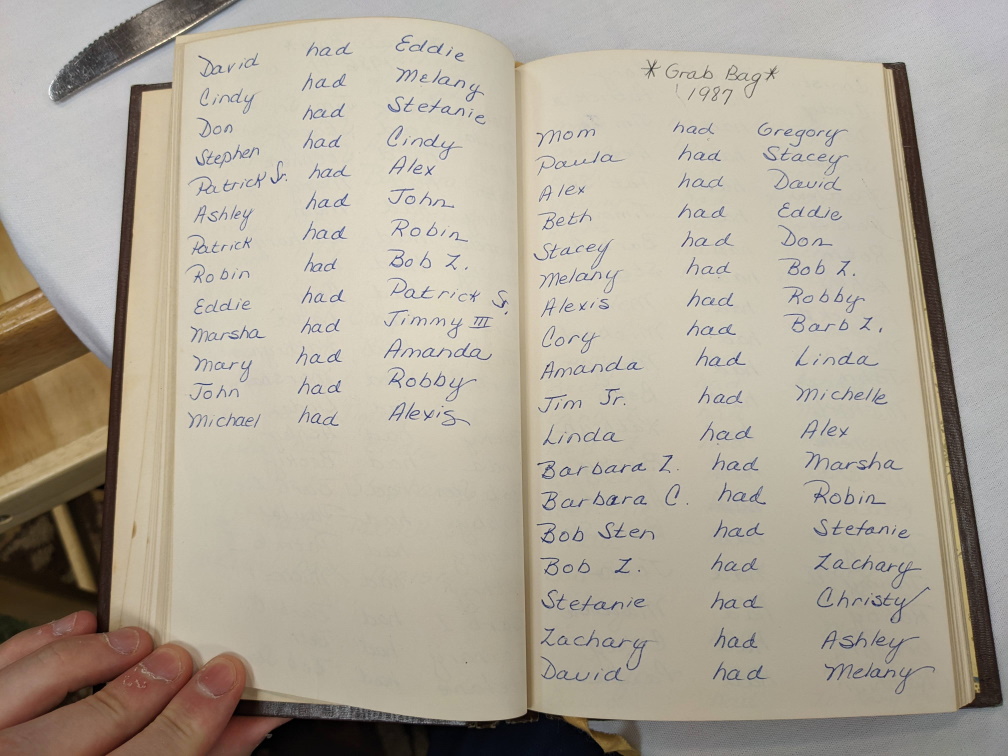 David had Eddie
Cindy had Melany
Don had Stefanie
Stephen had Cindy
Patrick Sr. had Alex
Ashley had John
Patrick had Robin
Robin had Bob Z.
Eddie had Patrick Sr.
Marsha had Jimmy III
Mary had Amanda
John had Robby
Michael had Alexis
*Grab Bag*
1987
Mom had Gregory
Paula had Stacey
Alex had David
Beth had Eddie
Stacey had Don
Melany had Bob Z.
Alexis had Robby
Cory had Barb Z.
Amanda had Linda
Jim Jr. had Michelle
Linda had Alex
Barbara Z. had Marsha
Barbara C. had Robin
Bob Sten had Stefanie
Bob Z. had Zachary
Stefanie had Christy
Zachary had Ashley
David had Melany